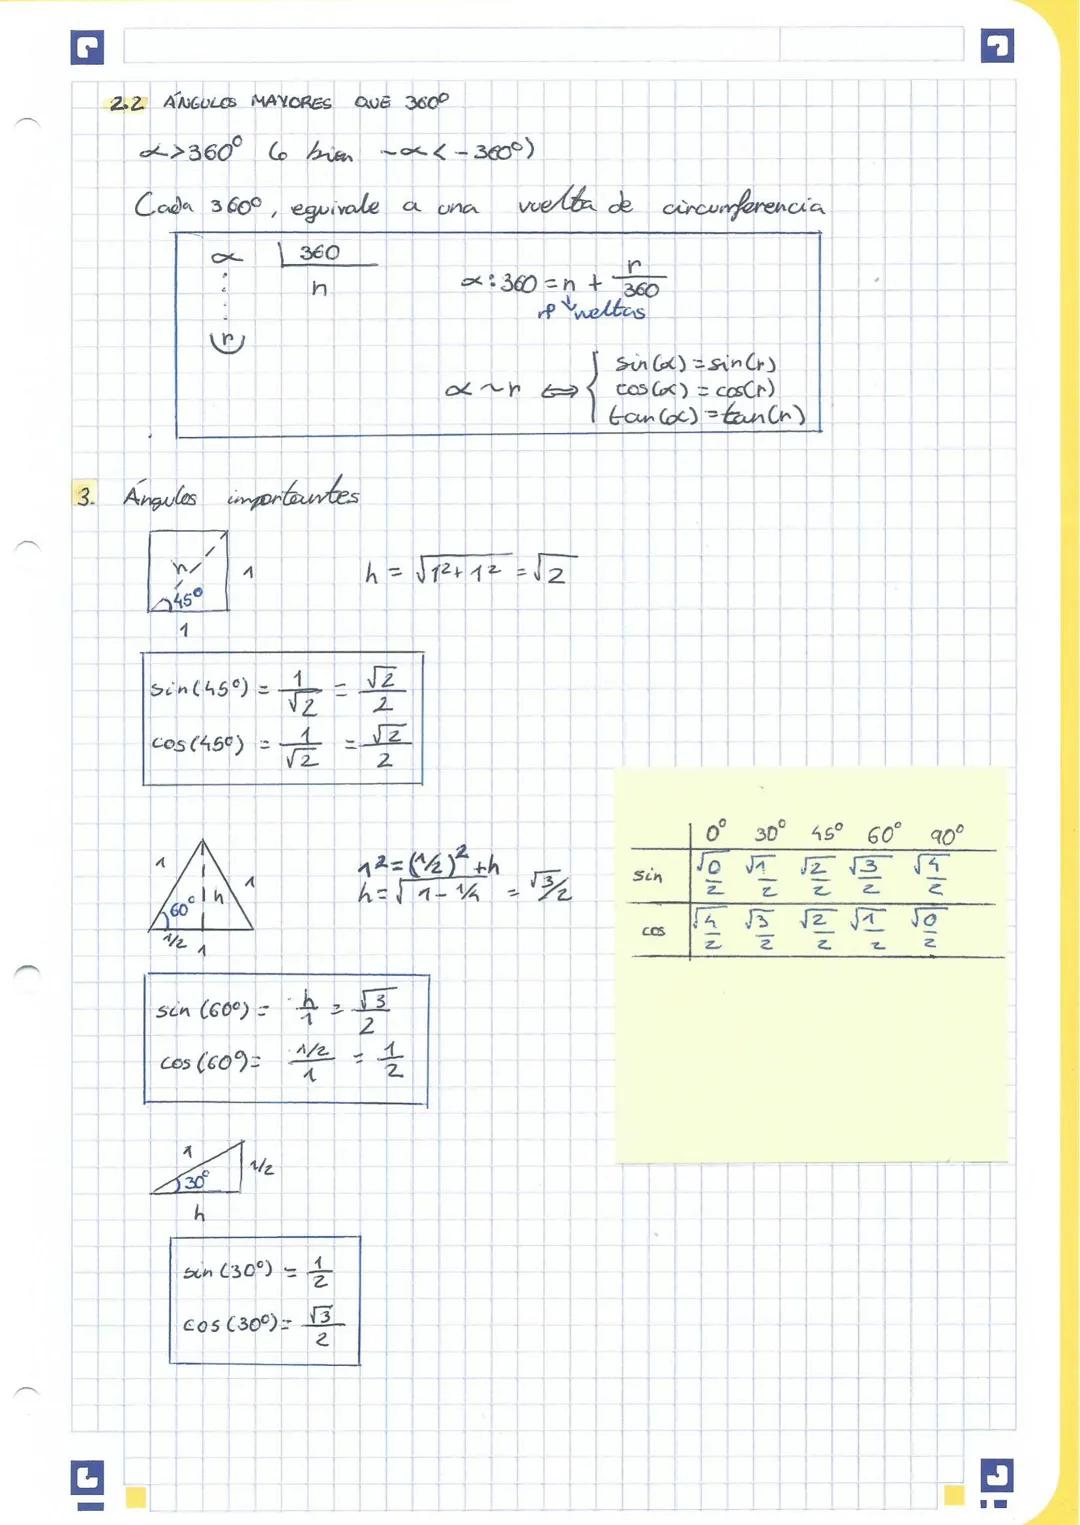 2.2 ÁNGULOS MAYORES QUE 360º
α>360º (o bien -α<-360º)
Cada 360º, equivale a una vuelta de circunferencia
α | 360
n
r
α:360 = n + r/360
nº vueltas
α ~ r ⇔ { sin(α) = sin(r)
cos(α) = cos(r)
tan(α) = tan(r)
3. Ángulos importantes
h
45º
1
1
h = √1²+1² = √2
sin(45º) = 1/√2 = √2/2
cos(45º) = 1/√2 = √2/2
1
1
60º
h
1/2
1
1² = (1/2)² + h
h = √1-1/4 = √3/2
sin (60º) = h/1 = √3/2
cos (60º) = 1/2/1 = 1/2
0º 30º 45º 60º 90º
sin √0/2 √1/2 √2/2 √3/2 √4/2
cos √4/2 √3/2 √2/2 √1/2 √0/2
1
30º
1/2
h
sin (30º) = 1/2
cos (30º) = √3/2